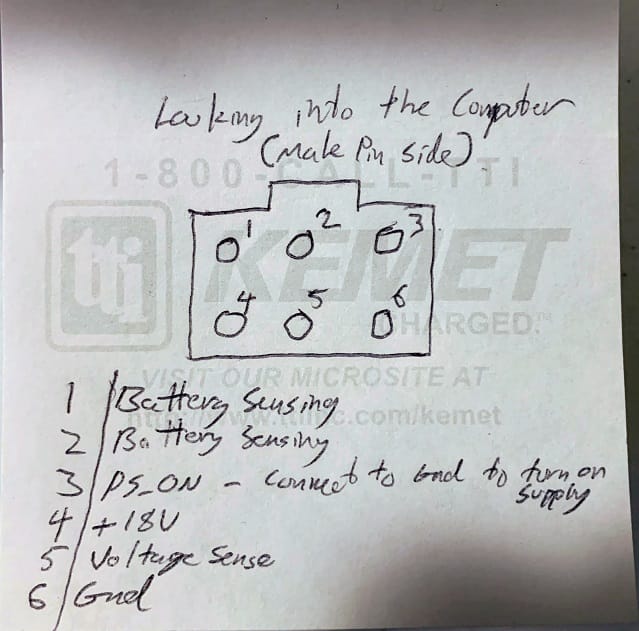 Looking into the Computer
(Male Pin side)
1-800-CALL-TTI
1 2 3
tti KEMET
4 5 6
CHARGED.™
VISIT OUR MICROSITE AT
1 Battery Sensing
http://www.ttiinc.com/kemet
2 Battery Sensing
3 PS_ON - Connect to Gnd to turn on
supply
4 +18V
5 Voltage Sense
6 Gnd